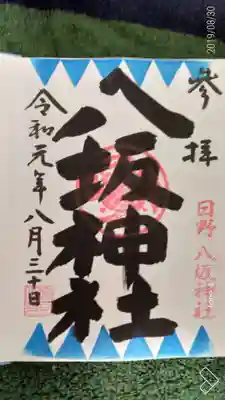 2019/08/30
参拝
日野八坂神社
八坂神社
令和元年八月三十日